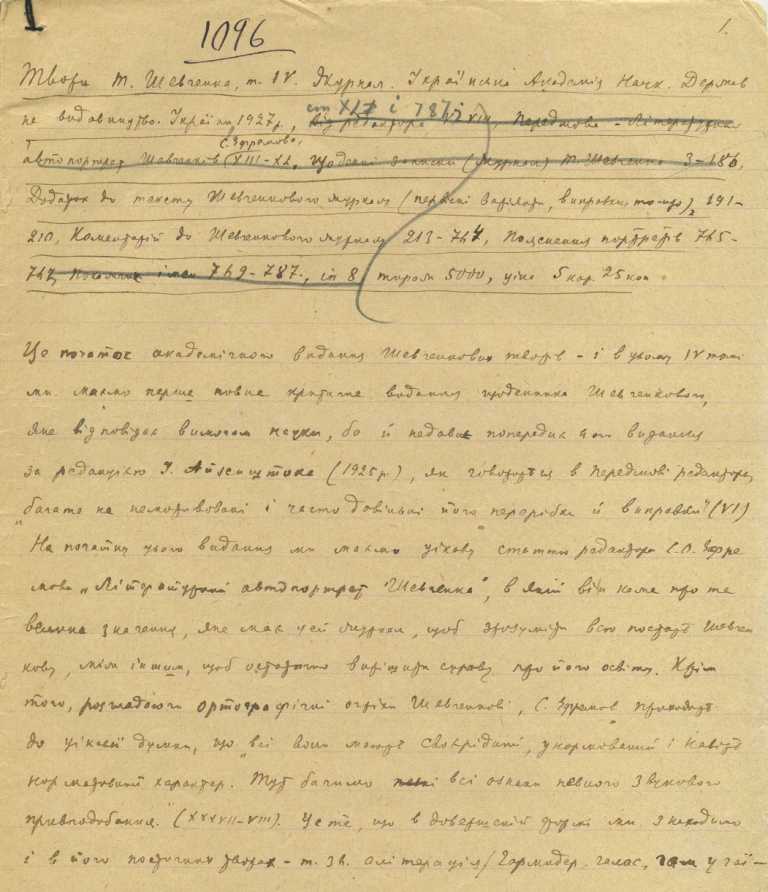 1096
1.
Твори Т. Шевченка, т. IV. Журнал. Українська Академія Наук. Держав
не видавництво України, 1927 р., ст XLI і 787, від редактора VIII, Передмова – Літературний
С. Єфремова,
автопортрет Шевченків (XIII–XL, щоденні записки (журнал) Т. Шевченка 3–186,
Додаток до тексту Шевченкового журналу (первісні варіянти, виправки то-що), 191–
210, Коментарій до Шевченкового журналу 213–744, Пояснення портретів 745–
747, Покажчик імен 749–787, in 8, тираж 5000, ціна 5 кар. 25 коп.
Це початок академічного видання Шевченкових творів – і в цьому IV томі
ми маємо перше повне критичне видання щоденника Шевченкового,
яке відповідає вимогам науки, бо й недавнє попереднє його видання
за редакцією І. Айзенштока (1925 р), як говориться в передмові редактора,
„багате на немотивовані і часто довільні його перерібки й виправки" (VI)
На початку цього видання ми маємо цікаву статтю редактора С. О. Єфре
мова „Літературний автопортрет Шевченка", в якій він каже про те
велике значення, яке має цей журнал, щоб зрозуміти всю постать Шевчен
кову, між іншим, щоб остаточно вирішити справу про його освіту. Крім
того, розглядаючи ортографічні огріхи Шевченкові, С. Єфремов приходить
до цікавої думки, що „всі вони мають своєрідний, унормований і навіть
нормативний характер. Тут бачимо всі ознаки певного звукового
привподобання." (XXXVII–VIII). Це те, що в довершеній формі ми знаходимо
і в його поетичних творах – т. зв. алітерація (Гармидер, галас, гам у гаї –